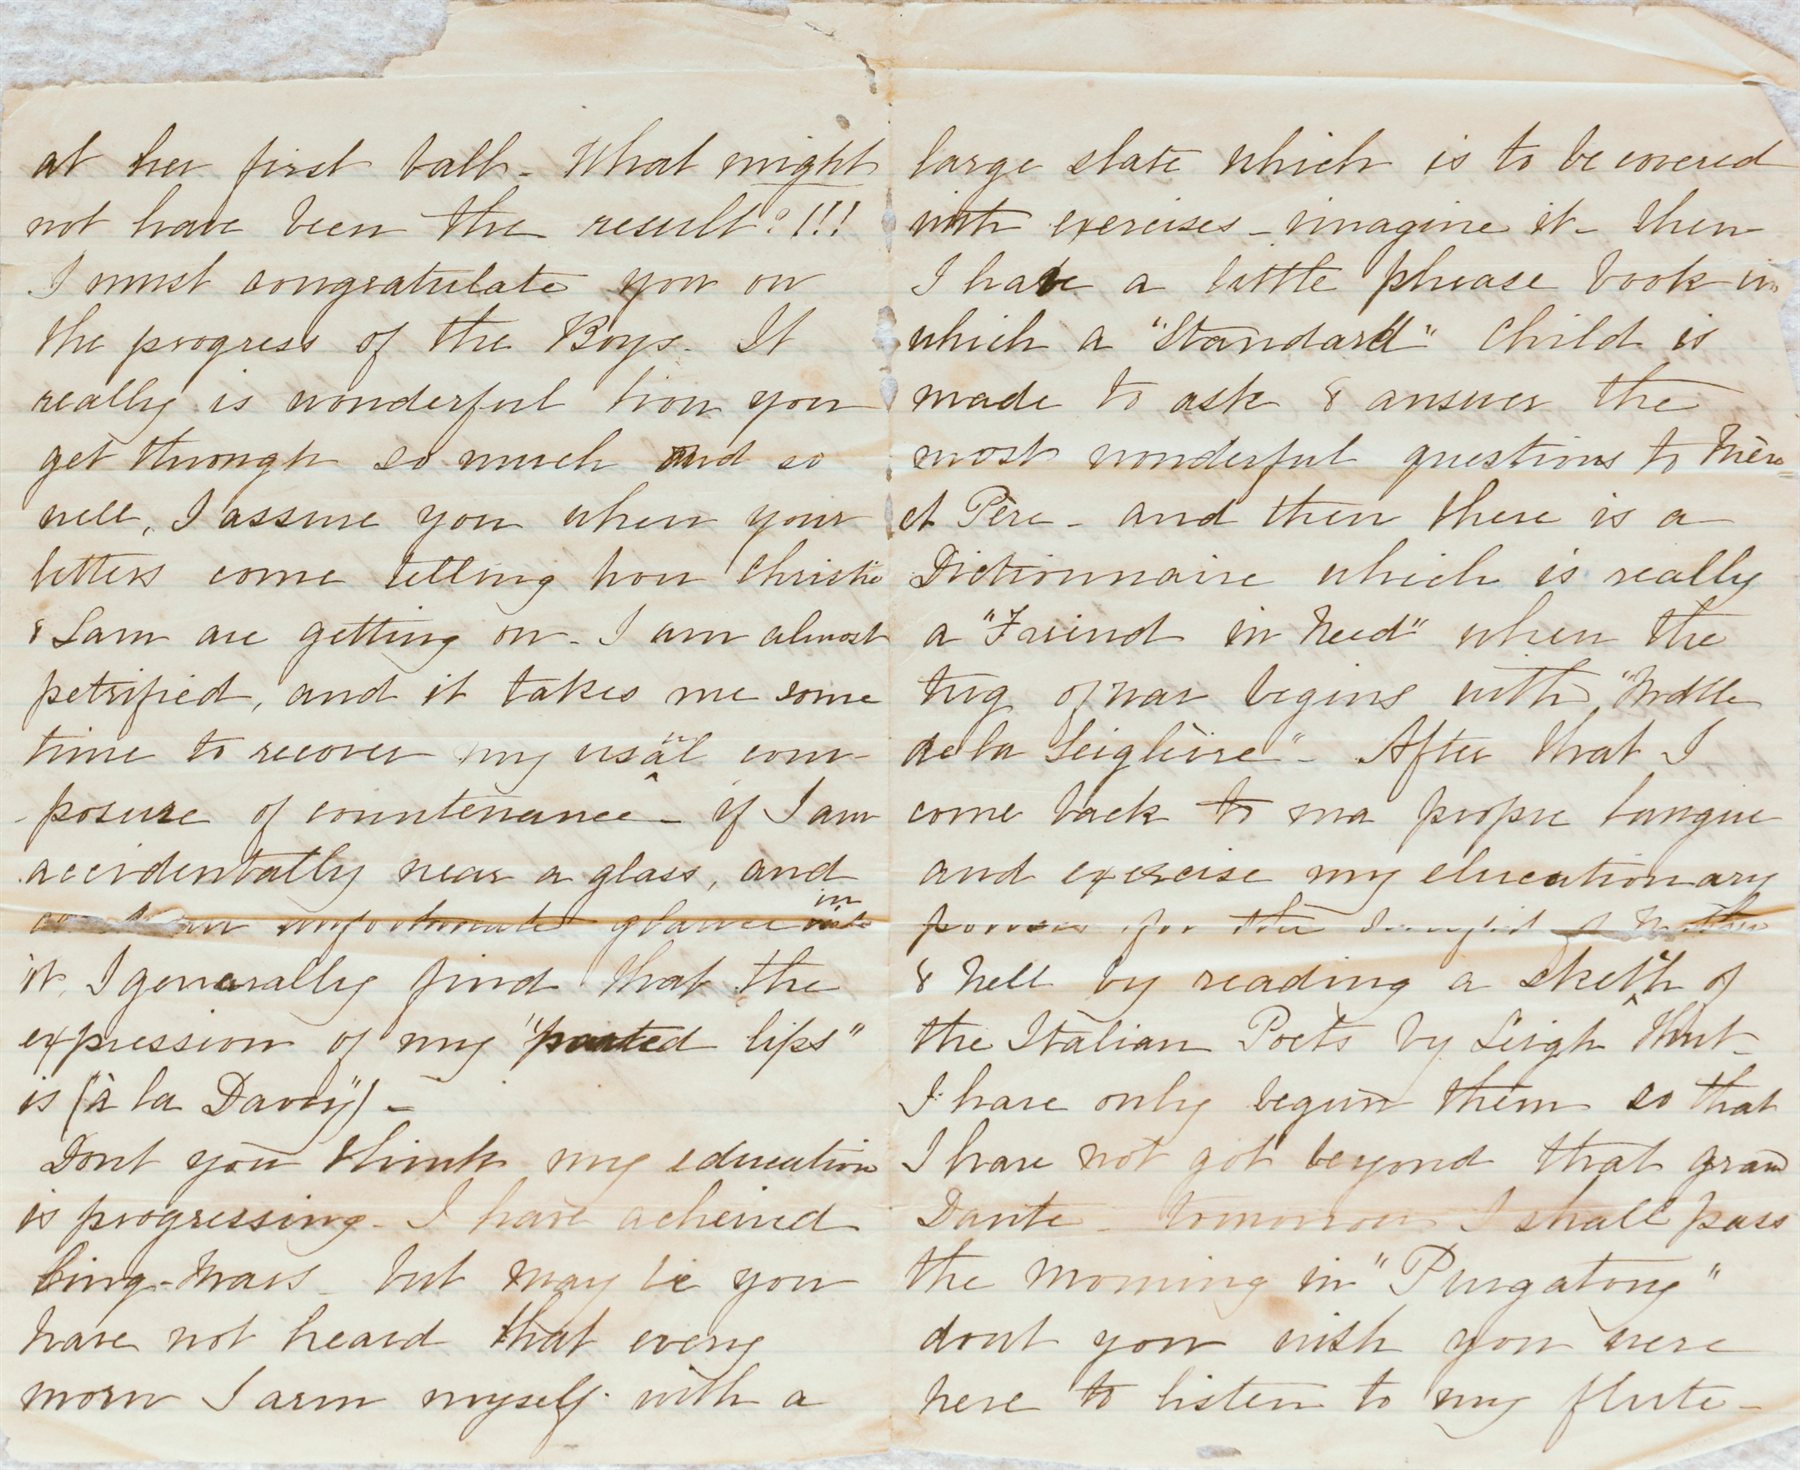 at her first ball - What might
not have been the result?!!!
I must congratulate you on
the progress of the Boys - It
really is wonderful how you
get through so much and so
well, I assure you when your
letters come telling how Christie
& Sam are getting on - I am almost
petrified, and it takes me some
time to recover my usual com-
-posure of countenance - if I am
accidentally near a glass, and
an unfortunate glance in
it, I generally find that the
expression of my "parted lips"
is ("à la Davy") -
Dont you think my education
is progressing - I have acheived
but may be you
have not heard that every
morn I arm myself with a
large slate which is to be covered
with exercises - imagine it - then
I have a little phrase book in
which a "Standard" Child is
made to ask & answer the
most wonderful questions to Mère
et Père - and then there is a
Dictionnaire which is really
a "Freind in Need" when the
tug of war begins with "Mdlle
de la Seiglière" - After that I
come back to ma propre langue
and exercise my elucutionary
powers for the benefit of Mother
& Nell by reading a sketch of
the Italian Poets by Leigh Hunt -
I have only begun them so that
I have not got beyond that grand
Dante - tomorrow I shall pass
the morning in "Purgatory"
dont you wish you were
here to listen to my flute -